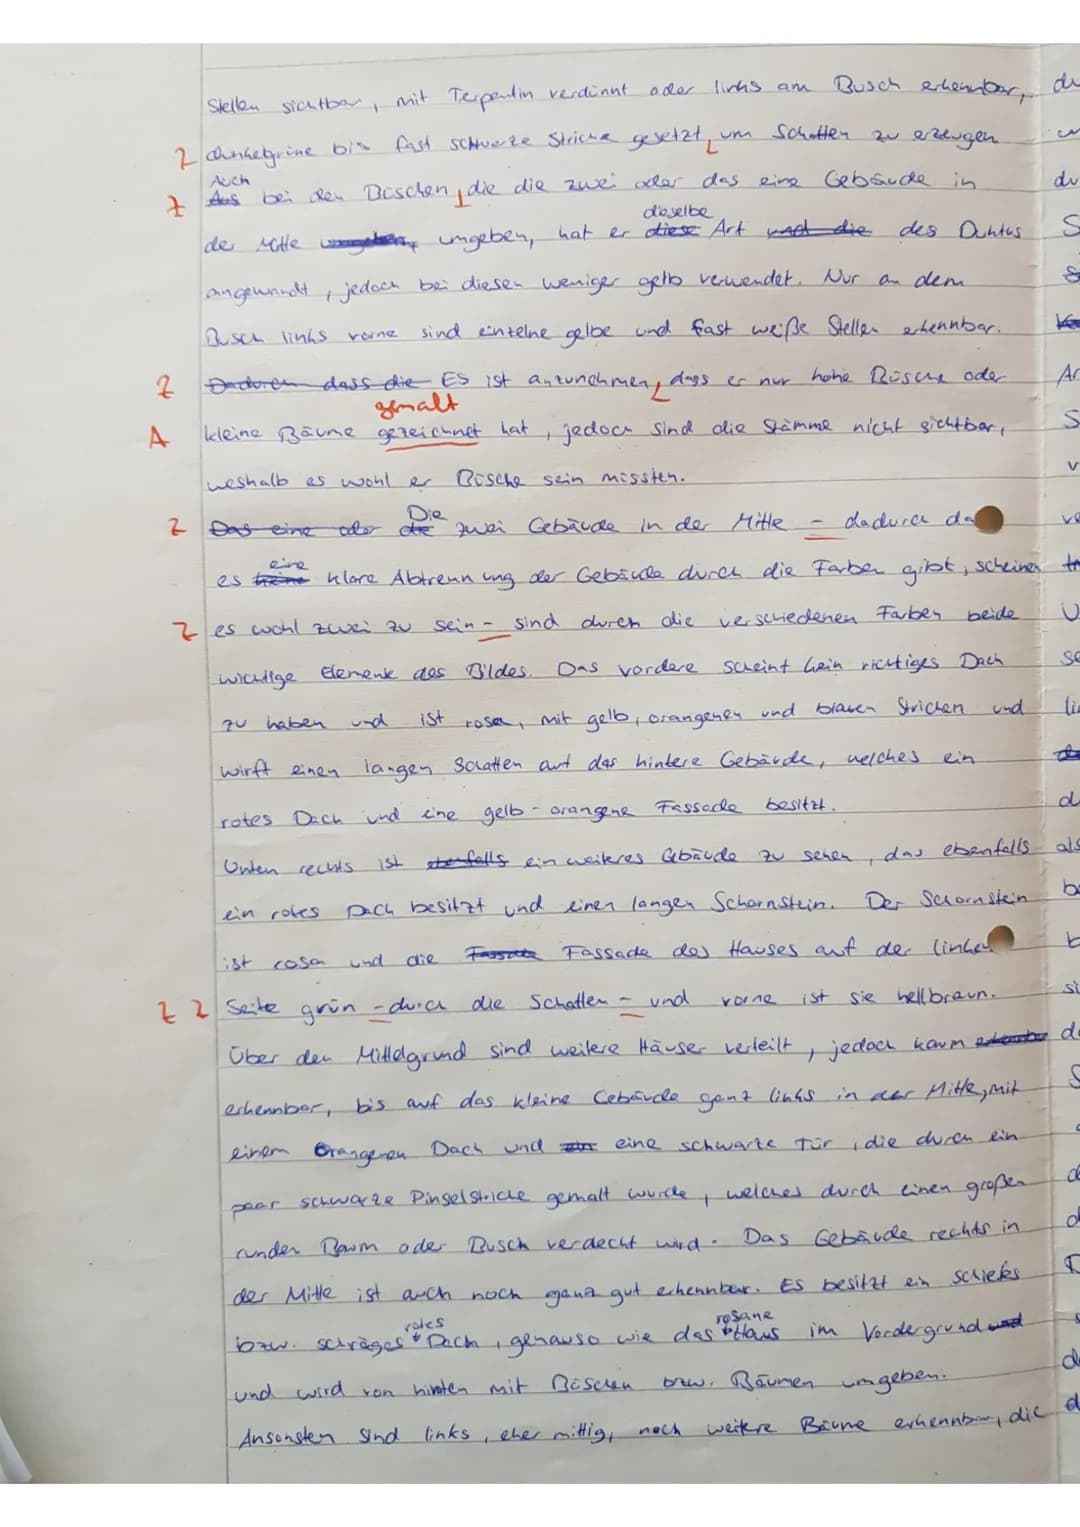 Stellen sichtbar, mit Terpentin verdünnt oder links am Busch erkennbar, du
Z dunkelgrüne bis fast schwarze Striche gesetzt, um Schatten zu erzeugen
Auch
Z Aus bei den Büschen, die die zwei oder das eine Gebäude in du
dieselbe
der Mitte umgeben, umgeben, hat er diese Art und die des Duktus S
angewandt, jedoch bei diesen weniger gelb verwendet. Nur an dem
Busch links vorne sind einzelne gelbe und fast weiße Stellen erkennbar.
Z Dadurch dass die Es ist anzunehmen, dass er nur hohe Büsche oder
gemalt
A kleine Bäume gezeichnet hat, jedoch sind die Stämme nicht sichtbar, S
weshalb es wohl er Büsche sein müssten. v
Die
Z Das eine oder die zwei Gebäude in der Mitte - dadurch da ve
eine
es keine klare Abtrennung der Gebäude durch die Farben gibt, scheinen
Z es wohl zwei zu sein - sind durch die verschiedenen Farben beide U
wichtige Elemente des Bildes. Das vordere scheint kein richtiges Dach se
zu haben und ist rosa, mit gelb, orangenen und blauen Strichen und li
wirft einen langen Schatten auf das hintere Gebäude, welches ein
rotes Dach und eine gelb-orangene Fassade besitzt. d
Unten rechts ist ebenfalls ein weiteres Gebäude zu sehen, das ebenfalls als
ein rotes Dach besitzt und einen langen Schornstein. Der Schornstein be
ist rosa und die Fassade Fassade des Hauses auf der linken b
Z Z Seite grün - durch die Schatten - und vorne ist sie hellbraun. si
Über den Mittelgrund sind weitere Häuser verteilt, jedoch kaum erkennbar d
erkennbar, bis auf das kleine Gebäude ganz links in der Mitte, mit S
einem orangenen Dach und ein eine schwarze Tür, die durch ein
paar schwarze Pinselstriche gemalt wurde, welches durch einen großen
runden Baum oder Busch verdeckt wird. Das Gebäude rechts in d
der Mitte ist auch noch ganz gut erkennbar. Es besitzt ein schiefes
rotes rosane
bzw. schräges Dach, genauso wie das Haus im Vordergrund und
und wird von hinten mit Büschen bzw. Bäumen umgeben. d
Ansonsten sind links, eher mittig, noch weitere Bäume erkennbar, die d